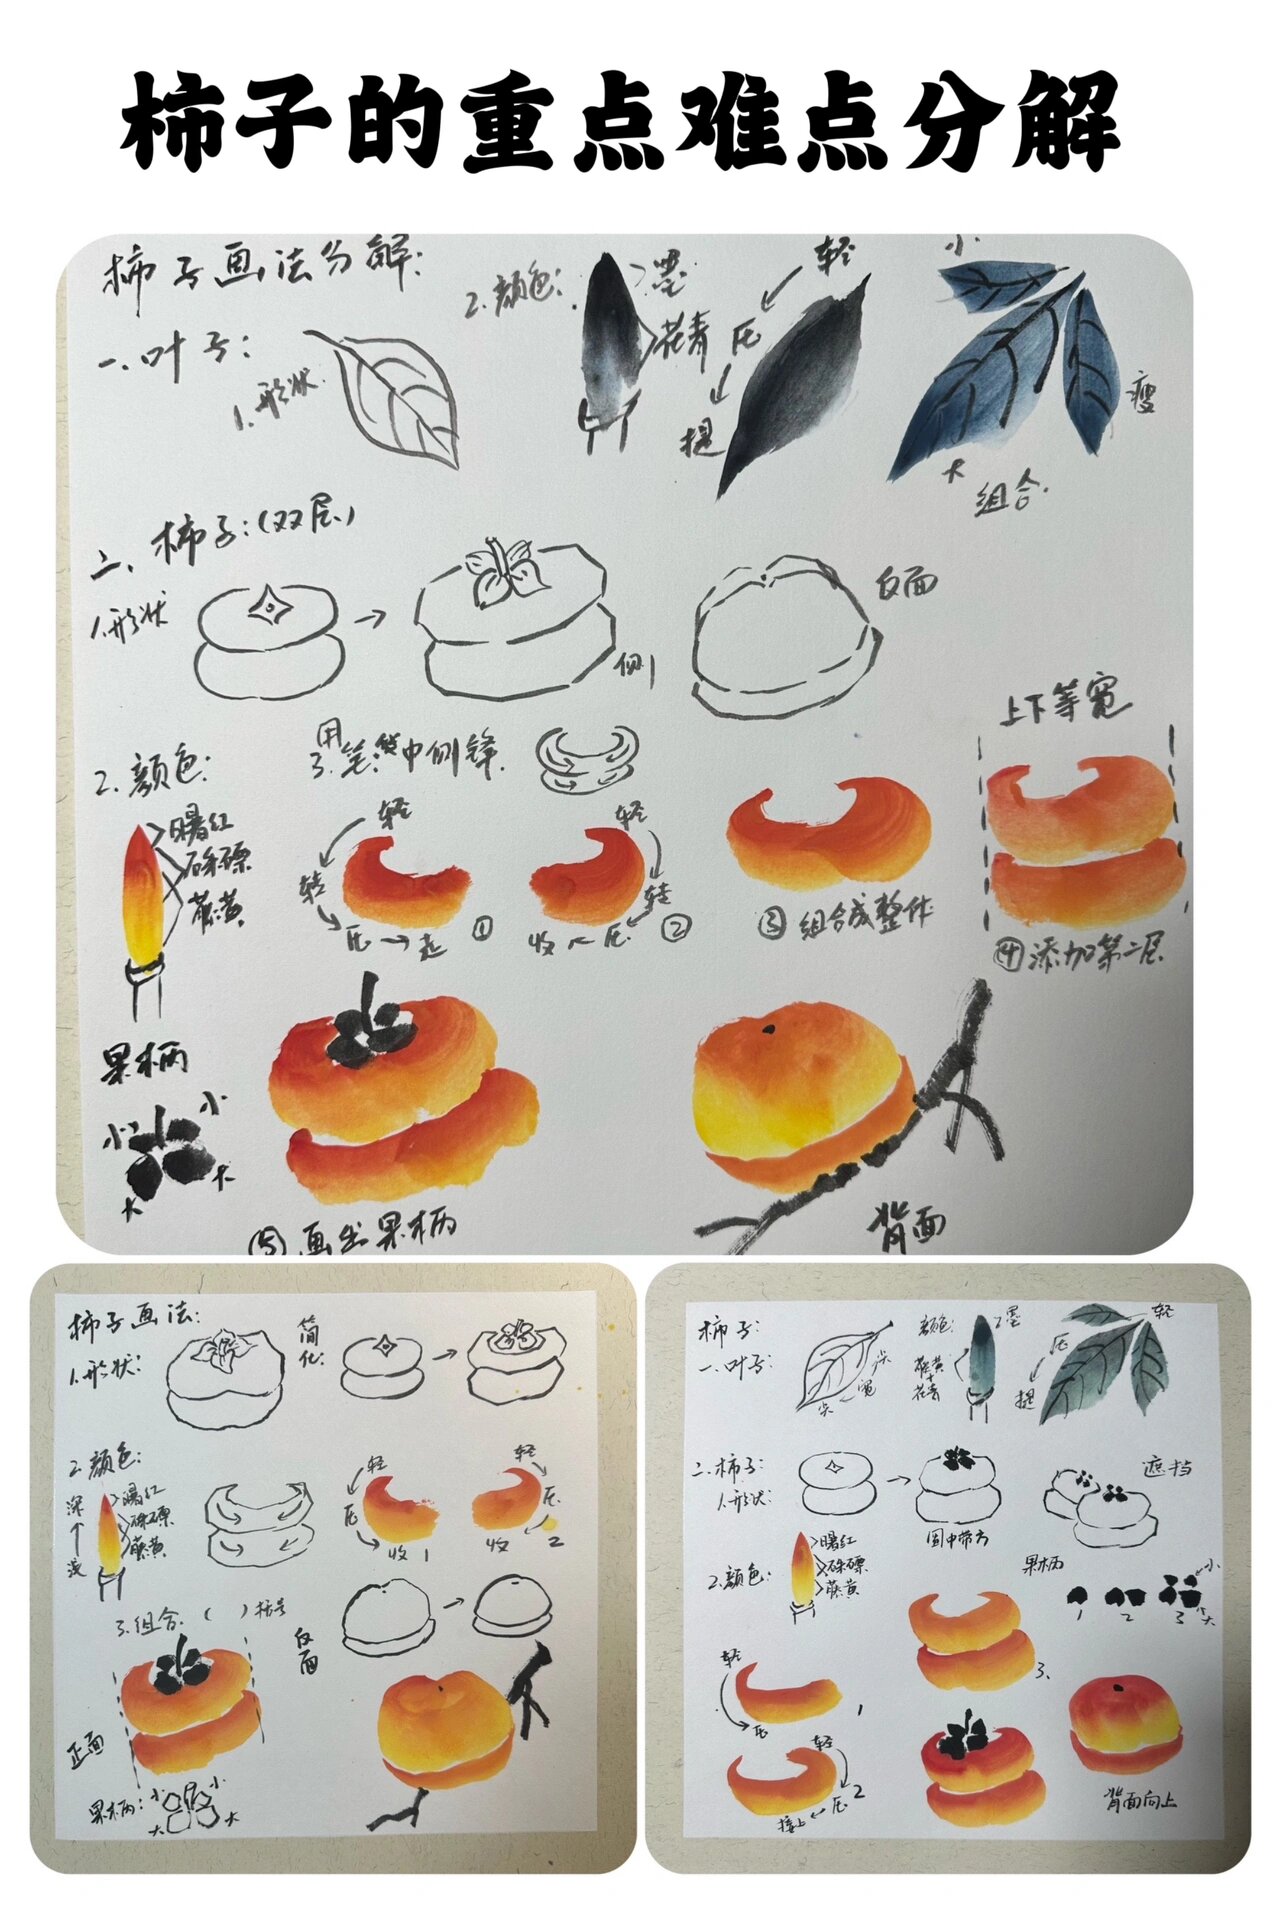 柿子的重点难点分解
柿子画法分解:
一.叶子:
1.形状.
2.颜色:
墨
花青
轻
压
提
小.
瘦
大
组合.
二、柿子:(双层)
1.形状
侧
反面
2.颜色:
曙红
朱磦
藤黄
3.用笔:中侧锋.
轻
转
压→走
①
轻
转
收←压
②
③组合成整体
上下等宽
④添加第二层
果柄
小
小
大
大
⑤画出果柄
背面
柿子画法:
1.形状:
简化:
2.颜色:
深
浅
曙红
朱磦
藤黄
轻
压
收1
轻
压
收2
3.组合.( )括号
正面
反面
果柄:
小
小
大
大
柿子:
一.叶子:
尖
宽
尖
颜色:
墨
藤黄
+
花青
轻
压
提
二.柿子:
1.形状:
圆中带方
遮挡
2.颜色:
曙红
朱磦
藤黄
果柄
小
大
1
2
3
轻
压
1
轻
压
接上
2
3.
背面向上